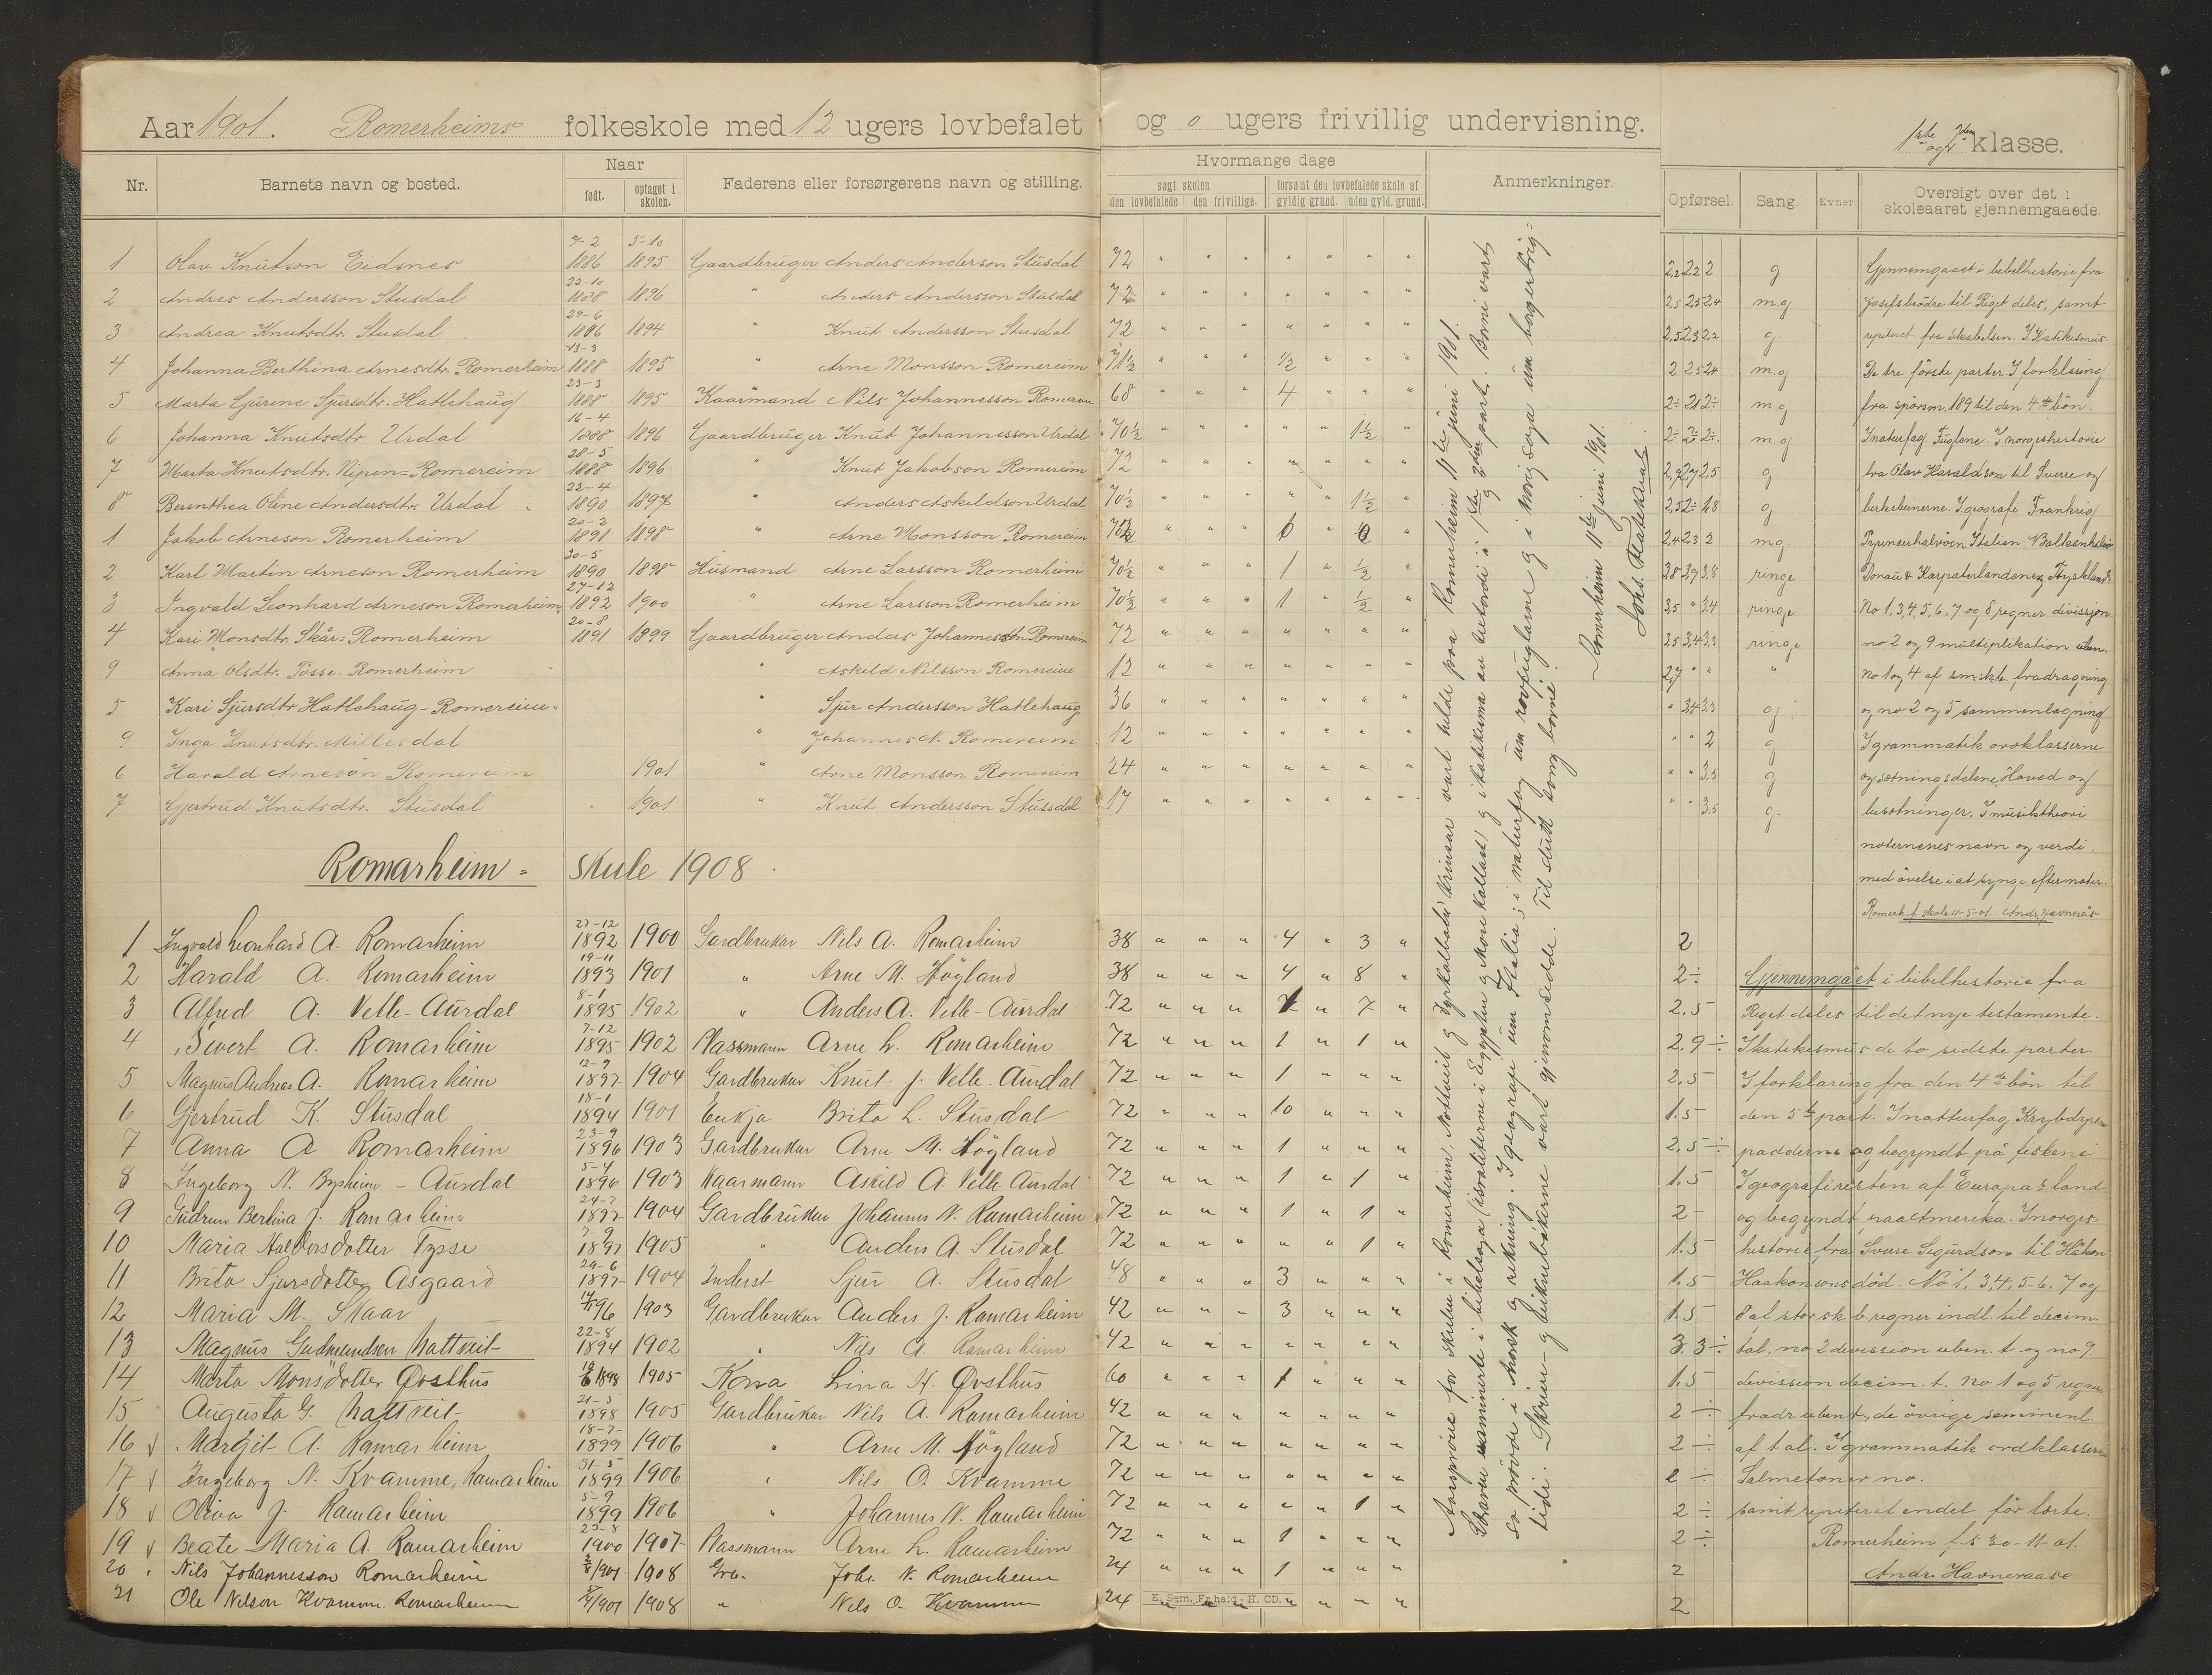 Aar 1901. Romerheims folkeskole med 12 ugers lovbefalet og 0 ugers frivillig undervisning. 1ste og 2den klasse.
Nr. Barnets navn og bosted. Naar født. optaget i skolen. Faderens eller forsørgerens navn og stilling. Hvormange dage søgt skolen den lovbefalede den frivillige. forsømt den lovbefalede skole af gyldig grund. uden gyld. grund. Anmerkninger. Opførsel. Sang. Evner Oversigt over det i skoleaaret gjennemgaaede.
1 Olav Knutson Eidsnes 7-2 1886 5-10 1895 Gaardbruger Anders Anderson Stusdal 72 " " " " " " " 2,2 2,2 2 g
2 Andres Andersson Stusdal 22-10 1888 1896 " Anders Andersson Stusdal 72 " " " " " " " 2,5 2,5 2,4 m.g
3 Andrea Knutsdtr. Stusdal 29-6 1886 1894 " Knut Andersson Stusdal 72 " " " " " " " 2,5 2,3 2,2 g
4 Johanna Berthina Arnesdtr. Romerheim 13-3 1888 1895 " Arne Monsson Romereim 71½ " " " ½ " " " 2 2,5 2,4 m.g
5 Marta Gurine Sjursdtr. Hatlehaug 23-3 1888 1895 Kaarmand Nils Johannesson Romereim 68 " " " 4 " " " m.g
6 Johanna Knutsdtr Urdal 16-4 1888 1896 Gaardbruger Knut Johannesson Urdal 70½ " " " " " 1½ " m.g
7 Marta Knutsdtr. Nipen=Romereim 28-5 1888 1896 " Knut Jakobson Romereim 72 " " " " " " " 2,9 2,7 2,5 g
8 Berenthea Oline Andersdtr. Urdal 22-4 1890 1897 " Anders Askildson Urdal 70½ " " " " " 1½ " g
1 Jakob Arneson Romerheim 20-2 1891 1898 " Arne Monsson Romereim " " " " " 2,4 2,3 2 mg.
2 Karl Martin Arneson Romerheim 30-5 1890 1898 Husmand Arne Larsson Romerheim 70½ " " " 1 " ½ " 3,8 3,9 3,8 ringe
3 Ingvald Leonhard Arneson Romerheim 27-12 1892 1900 " Arne Larsson Romerheim 70½ " " " 1 " ½ " 3,5 " 3,4 ringe
4 Kari Monsdtr. Skår=Romerheim 20-8 1891 1899 Gaardbruger Anders Johannesson Romereim 72 " " " " " " " 3,5 3,4 3,3 ringe
9 Anna Olsdtr. Tösse-Romerheim " Askild Nilsson Romereim 12 " " " " " " " 2,7 " " "
5 Kari Sjursdtr Hatlehaug-Romereim " Sjur Andersson Hatlehaug 36 " " " " " " " " 3,4 3,3 g
9 Inga Knutsdtr. Millesdal " Johannes N. Romereim 12 " " " " " " " " " 2 g
6 Harald Arneson Romereim 1901 " Arne Monsson Romereim 24 " " " " " " " " " 3,5 g
7 Gjertrud Knutsdtr. Stusdal 1901 " Knut Andersson Stussdal 17 " " " " " " " " " 3,5 g.
Gjennemgaaet i bibelhistorie fra
Josefs brödre til Riget deles, samt
repeteret fra skabelsen. I Katikismus
De tre förste parter. I forklaring
fra spörsm. 189 til den 4de bön.
I naturfag Fuglene. I norgeshistorie
fra Olav Haraldson til Sverre og
birkebeinerne. I geografi Frankrig
Pyreneerhalvöen Italien Balkanhalvö
Donau & Karpaterlandene, Tyskland.
No 1,3,4,5,6,7 og 8 regner divisjon
no 2 og 9 multiplikation uben.
No 1 og 4 af fradragning
og no 2 og 5 sammenlægning
I grammatik ordklasserne
og sætningsdelene, Hoved og
bisætninger. I musiktheori
noternenes navn og verdi
med övelse i at synge efter noter.
Romerh. f. skole 11-5-01. Andr. Havnerås
Aarsprøve for skulen i Romerheim, Nottveit og Dyrkolbotn krinsar vart halde paa Romerheim 11te juni 1901.
i bibelsoga (israeliterne i Egypten og Mose kallast) og i katikisma av lærdom i 1ste og 3die part. Borni vart
so prövde i norsk og rekning. I geografi um Italia; i naturfag um rovfuglane og i norig soga um borgarkrig=
tidi. Skrive- og teiknebökane vart gjenomsedde. Til slutt song borni.
Romerheim 11te juni 1901.
Johs.
Romarheim - skule 1908.
1 Ingvald Leonhard A. Romarheim 27-12 1892 1900 Gardbrukar Nils A. Romarheim 38 " " " 4 " 3 " 2
2 Harald A. Romarheim 19-11 1893 1901 " Arne M. Högland 38 " " " 4 " 8 " 2÷
3 Alfred A. Vetle-Aurdal 8-1 1895 1902 " Anders A. Vetle-Aurdal 72 " " " " 7 " 2.5
4 Sivert A. Romarheim 7-12 1895 1902 Plassmann Arne L. Romarheim 72 " " " 1 " 1 " 2.9÷
5 Magnus Andreas A. Romarheim 12-9 1897 1904 Gardbrukar Knut J. Vetle-Aurdal 72 " " " 1 " " " 2.5
6 Gjertrud K. Stusdal 18-1 1894 1901 Enkja Brita L. Stusdal 72 " " " 10 " " " 1.5
7 Anna A Romarheim 23-9 1896 1903 Gardbrukar Arne M. Högland 72 " " " 1 " " " 2.5÷
8 Ingeborg N. Brysheim - Aurdal 5-4 1896 1903 Kaarmann Askild A. Vetle Aurdal 72 " " " 1 " 1 " 1.5
9 Gudrun Bertina J. Romarheim 24-7 1897 1904 Gardbrukar Johannes N. Romarheim 72 " " " 1 " 1 " 2-
10 Maria Haldorsdotter Tysse 7-9 1897 1905 " Anders A. Stusdal 72 " " " " " 1 " 1.5
11 Brita Sjursdotter Asgaard 29-6 1897 1904 Inderst Sjur A. Stusdal 48 " " " 3 " " " 1.5
12 Maria M. Skaar 96 1903 Gardbrukar Anders J. Romarheim 42 " " " 3 " " " 1.5
13 Magnus Gudmundsen Nattveit 22-8 1894 1902 " Nils A. Romarheim 42 " " " " " " " 3.3÷
14 Marta Monsdotter Øvsthus 1898 1905 Kona Lina H. Øvsthus 60 " " " 1 " " " 1.5
15 Augusta G. Nattveit 21-5 1898 1905 Gardbrukar Nils A. Romarheim 42 " " " " " " " 2÷
16 Margit A. Romarheim 18-7 1899 1906 " Arne M. Högland 72 " " " " " " " 2÷
17 Ingeborg N. Kvamme, Romarheim 31-5 1899 1906 " Nils O. Kvamme 72 " " " " " " " 2÷
18 Oliva J. Romarheim 5-9 1899 1906 " Johannes N. Romarheim 72 " " " " " 1 " 2÷
19 Beate Maria A. Romarheim 23-8 1900 1907 Plassmann Arne L. Romarheim 72 " " " 1 " " " 2÷
20 Nils Johannesson Romarheim 1901 1908 Grb. Johs. N. Romarheim 24 " " " 1 " " " 2
21 Ole Nilson Kvamme. Romarheim 1901 1908 " Nils O. Kvamme 24 " " " " " " " 2
Gjennemgået i bibelhistorie fra
Riget deles til det nye testamente.
I katekismus de to sidste parter
I forklaring fra den 4de bön til
den 5te part. I natturfag Krybdyren
padderne og begyndt på fiskene
I geografi resten af Europas land
og begyndt paa Amerika. I norges=
historie fra Svere Sigurdson til Håkon
Haakonsons död. No 1, 3,4, 5-6, 7 og
8 al storsk b regner indl. til decim.
tal, no 2 devission uben. t. og no 9
devission decim. t. No 1 og 5 regner
fradr uben t, de övrige
af tal. I grammatik ordklasserne
Salmetoner no.
samt repeteret endel för læste.
Romerheim f.s 30-11 01.
Andr. Havneraas
E. Sem. Fr.hald - H. CD.